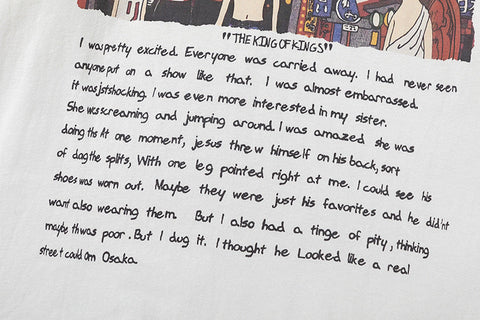 "THE KING OF KINGS"
I was pretty excited. Everyone was carried away. I had never seen
anyone put on a show like that. I was almost embarrassed.
It was jst shocking. I was even more interested in my sister.
She was screaming and jumping around. I was amazed she was
doing ths At one moment, jesus threw himself on his back, sort
of doig the splits, With one leg pointed right at me. I could see his
shoes was worn out. Maybe they were just his favorites and he did'nt
want also wearing them. But I also had a tinge of pity, thinking
maybe th was poor. But I dug it. I thought he Looked like a real
street could om Osaka.